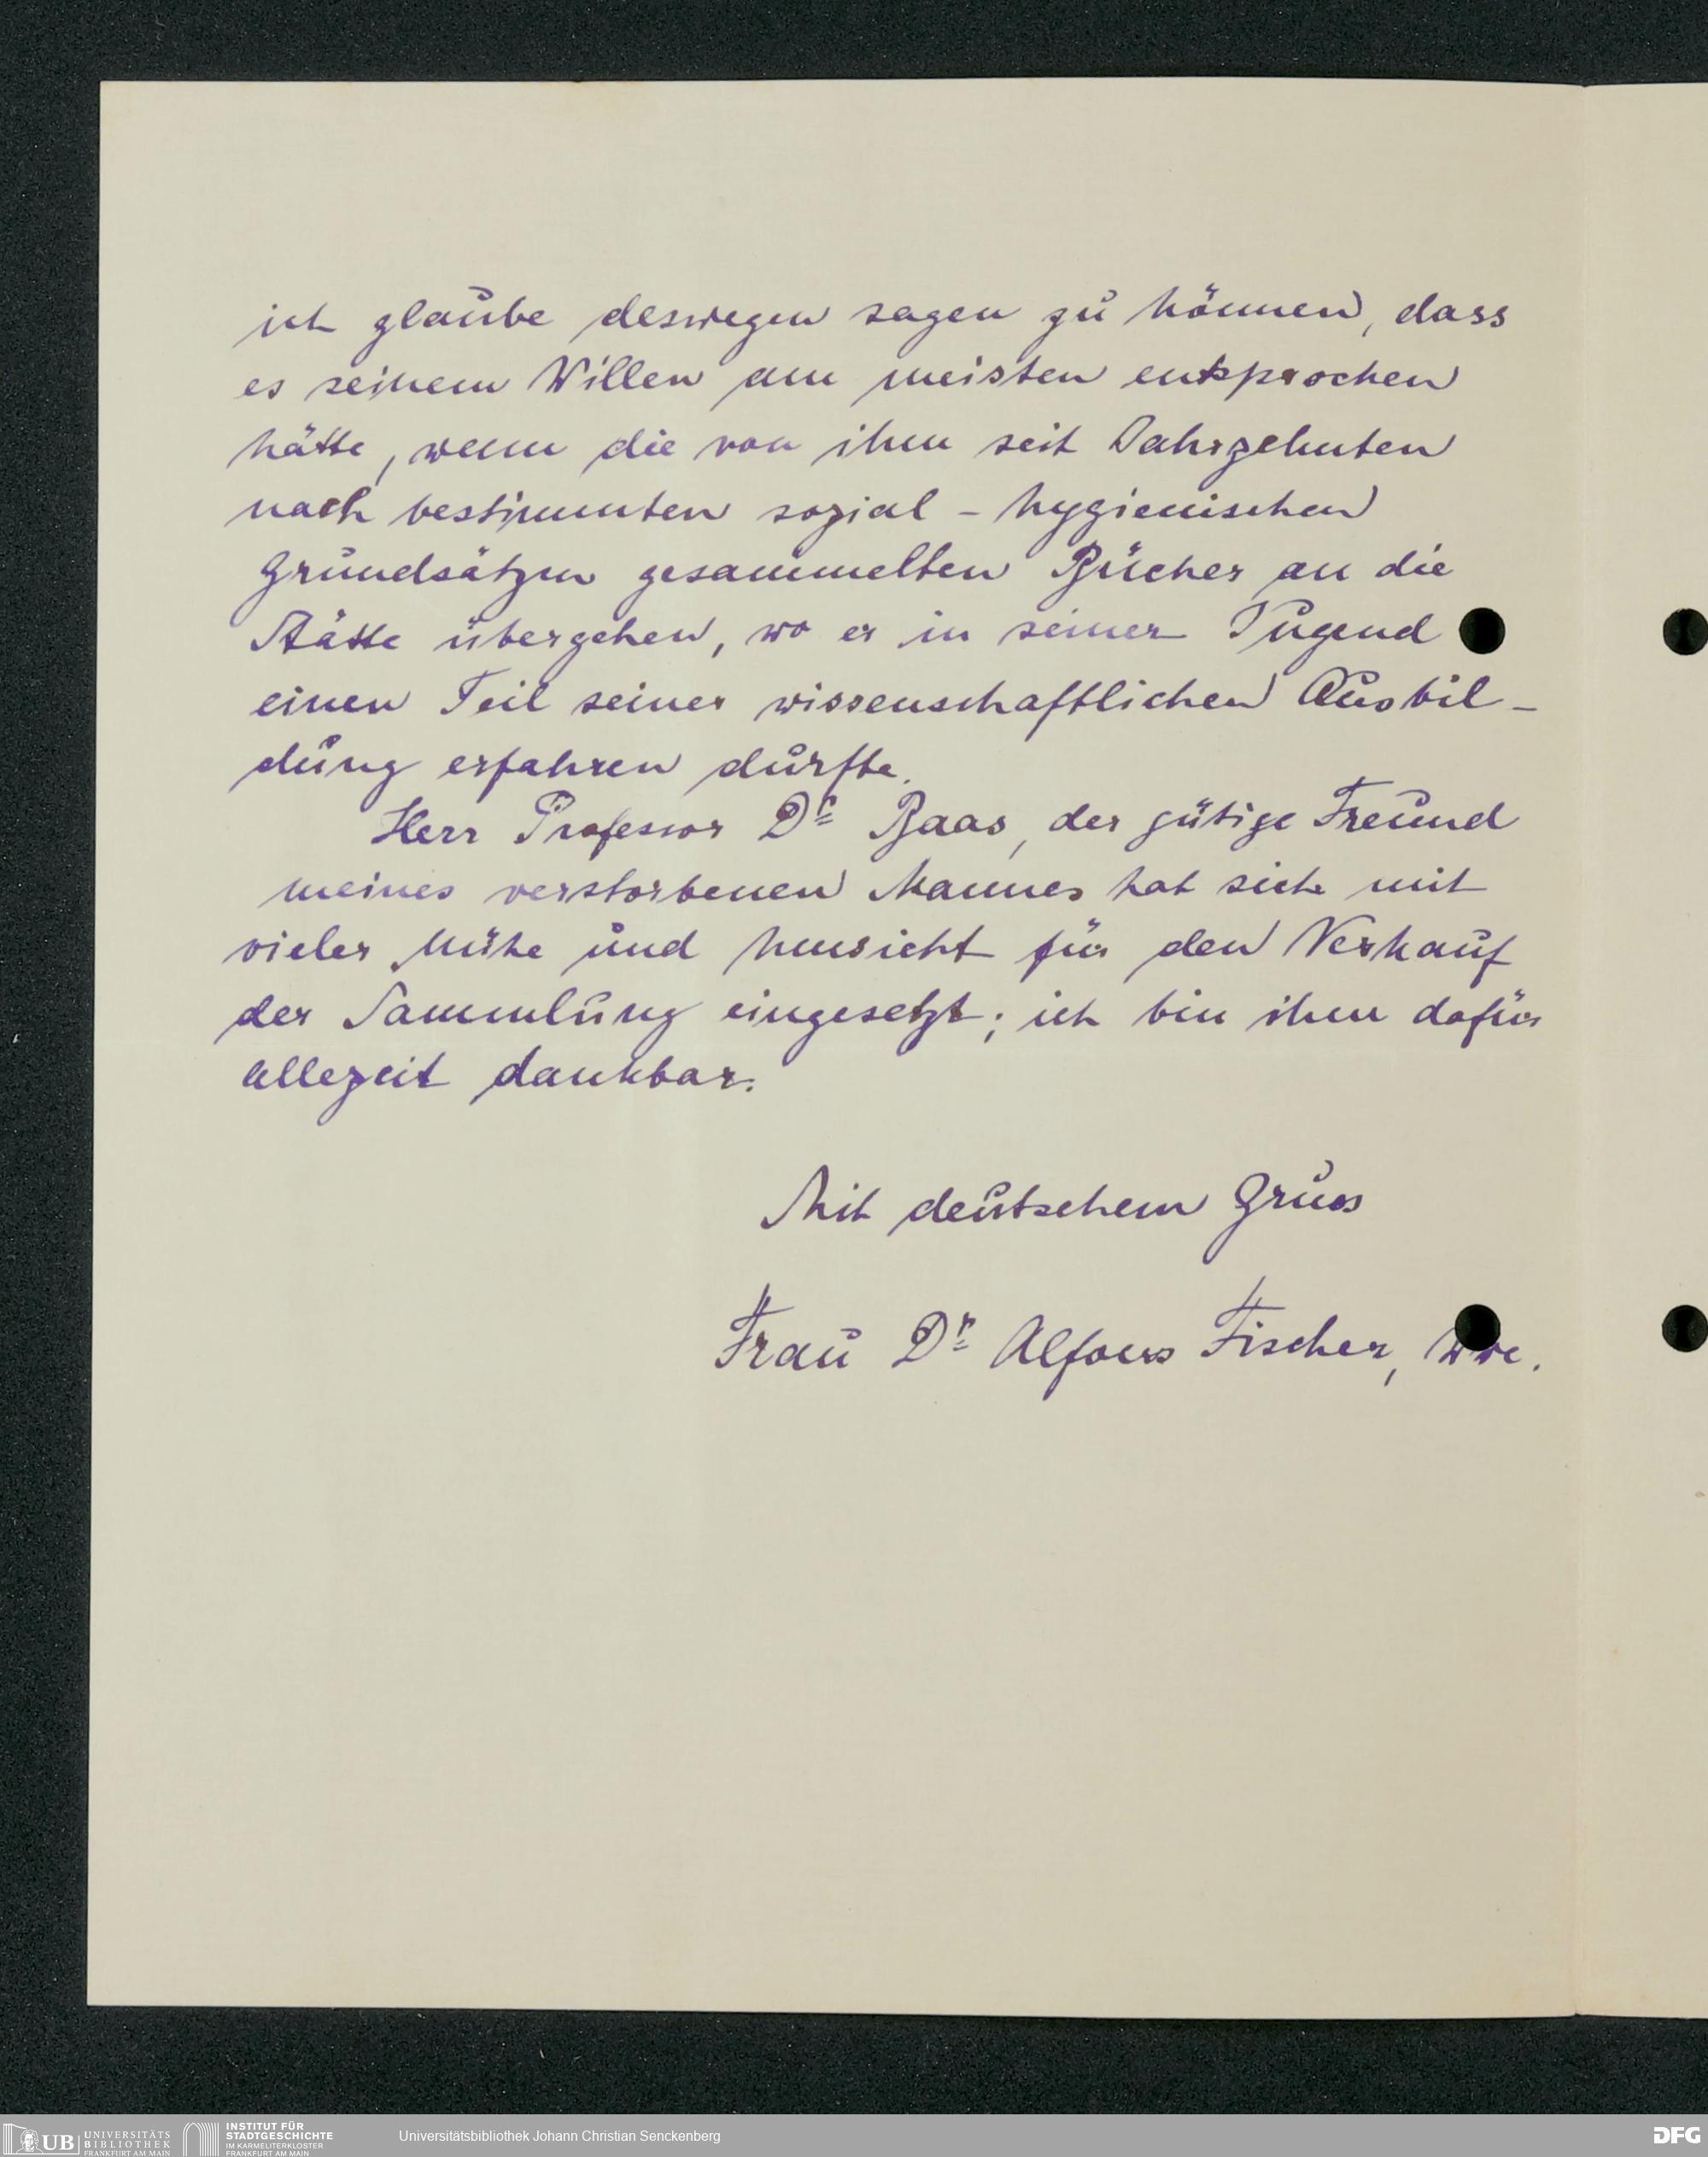 ich glaube deswegen sagen zu können, dass
es seinem Willen am meisten entsprochen
hätte, wenn die von ihm seit Jahrzehnten
nach bestimmten sozial - hygienischen
Grundsätzen gesammelten Bücher an die
Stätte übergehen, wo er in seiner Jugend
einen Teil seiner wissenschaftlichen Ausbil-
dung erfahren durfte.
Herr Professor Dr Baas, der gütige Freund
meines verstorbenen Mannes hat sich mit
vieler Mühe und Umsicht für den Verkauf
der Sammlung eingesetzt; ich bin ihm dafür
allezeit dankbar.
Mit deutschem Gruss
Frau Dr Alfons Fischer, Wwe.
UB UNIVERSITÄTS
BIBLIOTHEK
FRANKFURT AM MAIN
INSTITUT FÜR
STADTGESCHICHTE
IM KARMELITERKLOSTER
FRANKFURT AM MAIN
Universitätsbibliothek Johann Christian Senckenberg
DFG